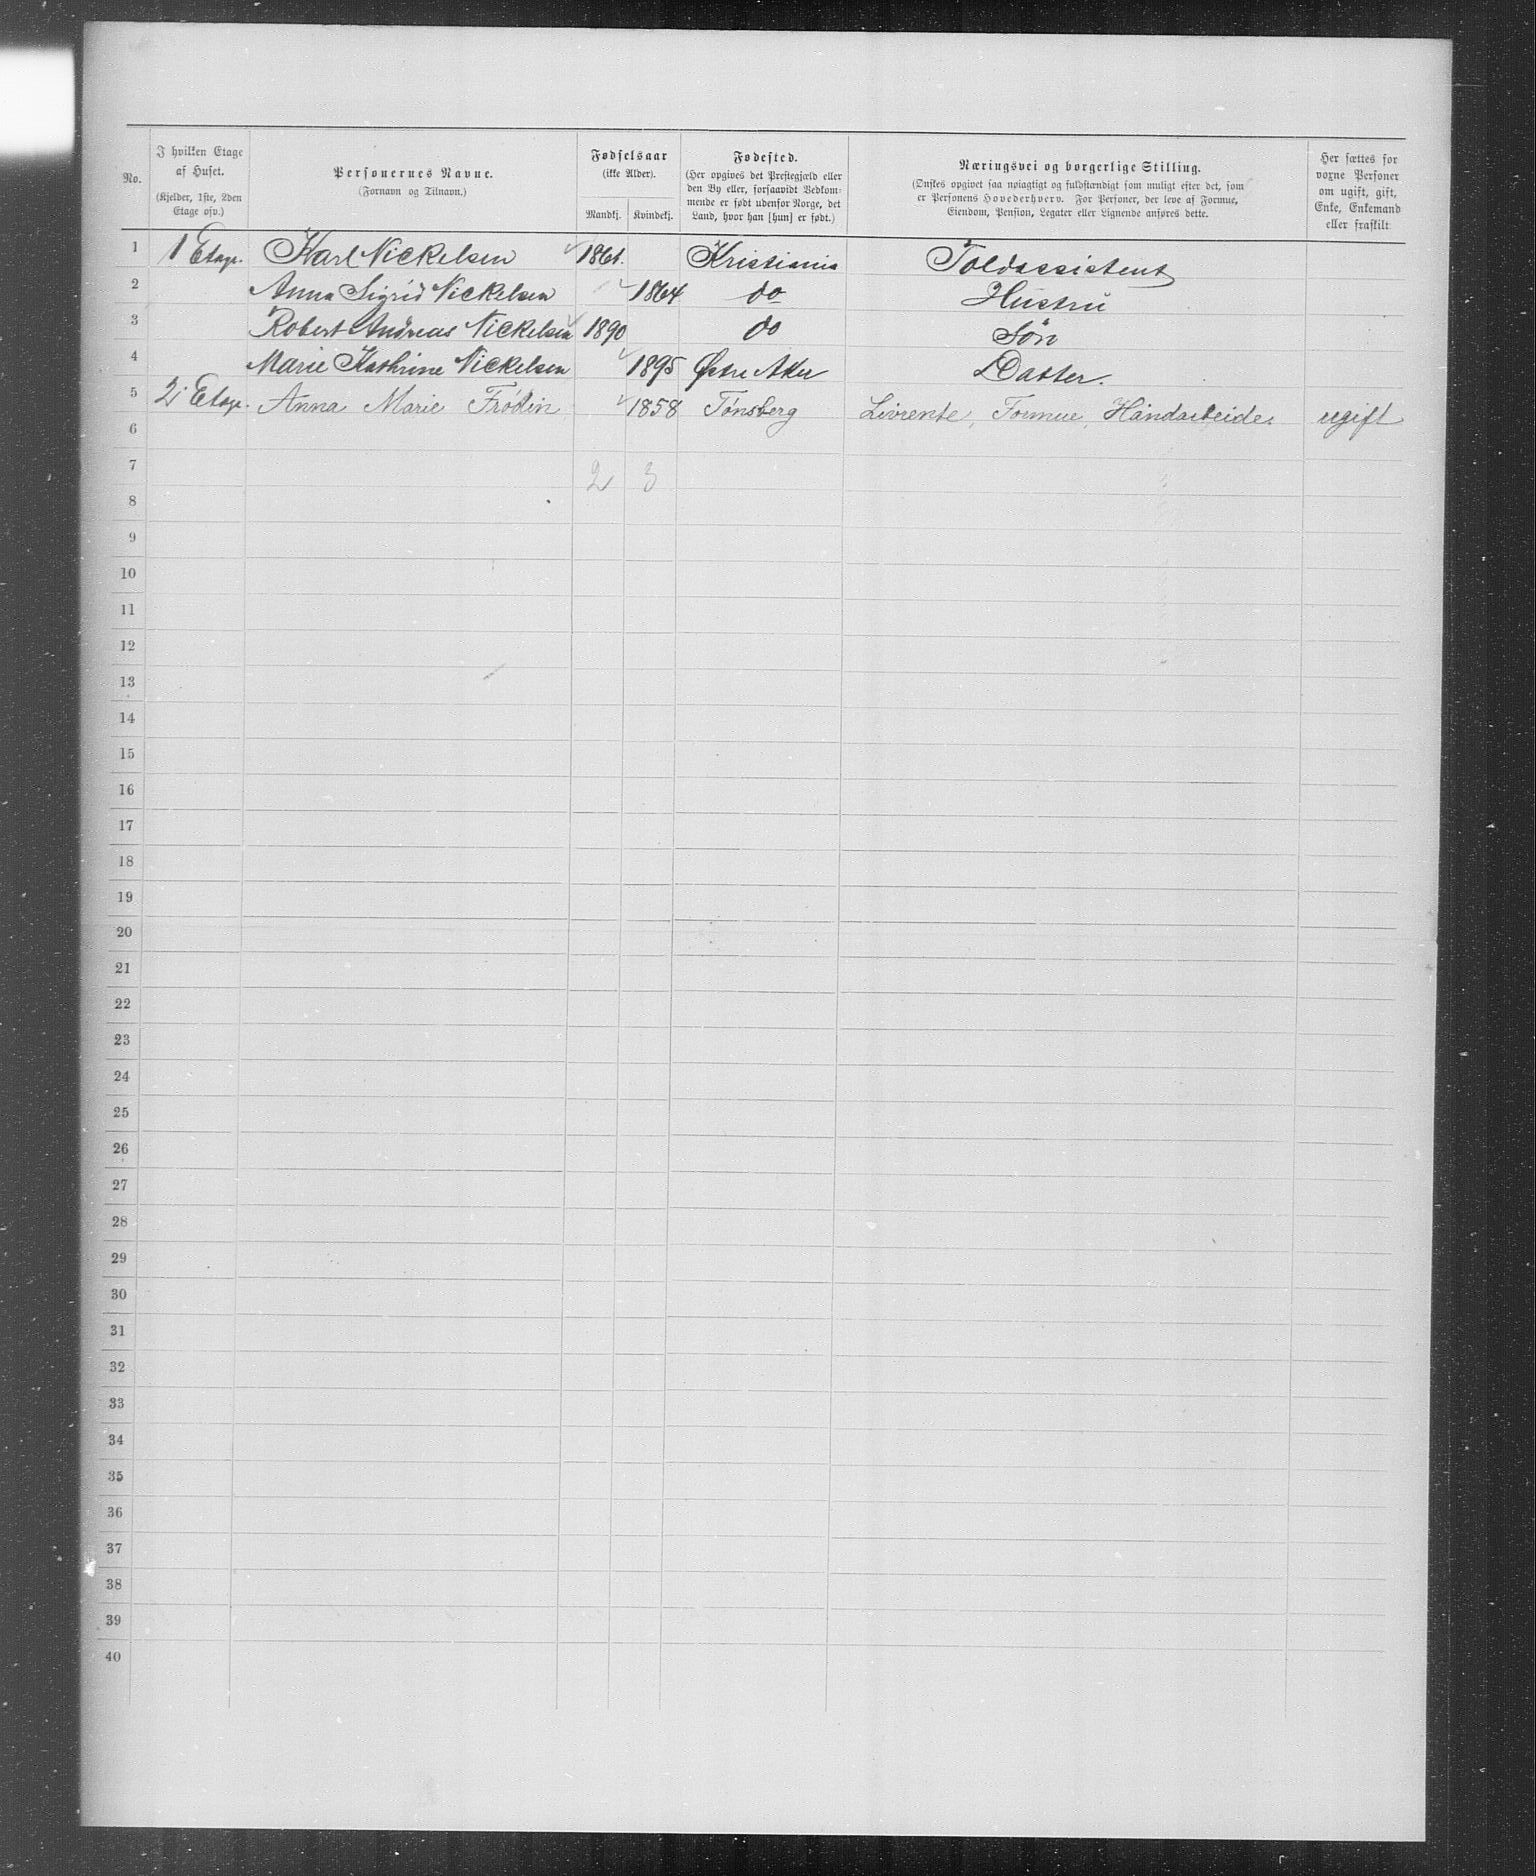 No.
I hvilken Etage
af Huset.
(Kjelder, 1ste, 2den
Etage osv.)
Personernes Navne.
(Fornavn og Tilnavn.)
Fødselsaar
(ikke Alder).
Mandkj.
Kvindekj.
Fødested.
(Her opgives det Prestegjæld eller
den By eller, forsaavidt Vedkom-
mende er født udenfor Norge, det
Land, hvor han [hun] er født.)
Næringsvei og borgerlige Stilling.
(Ønskes opgivet saa nøiagtigt og fuldstændigt som muligt efter det, som
er Personens Hovederhverv. For Personer, der leve af Formue,
Eiendom, Pension, Legater eller Lignende anføres dette.
Her sættes for
voxne Personer
om ugift, gift,
Enke, Enkemand
eller fraskilt
1 1 Etage. Karl Nickelsen 1861. Kristiania Toldassistent
2 Anna Sigrid Nickelsen 1864 do Hustru
3 Robert Andreas Nickelsen 1890 do Søn
4 Marie Kathrine Nickelsen 1895 Østre Aker Datter.
5 2. Etage. Anna Marie Frödin 1858 Tønsberg Livrente, Formue, Håndarbeide. ugift
6
7 2 3
8
9
10
11
12
13
14
15
16
17
18
19
20
21
22
23
24
25
26
27
28
29
30
31
32
33
34
35
36
37
38
39
40